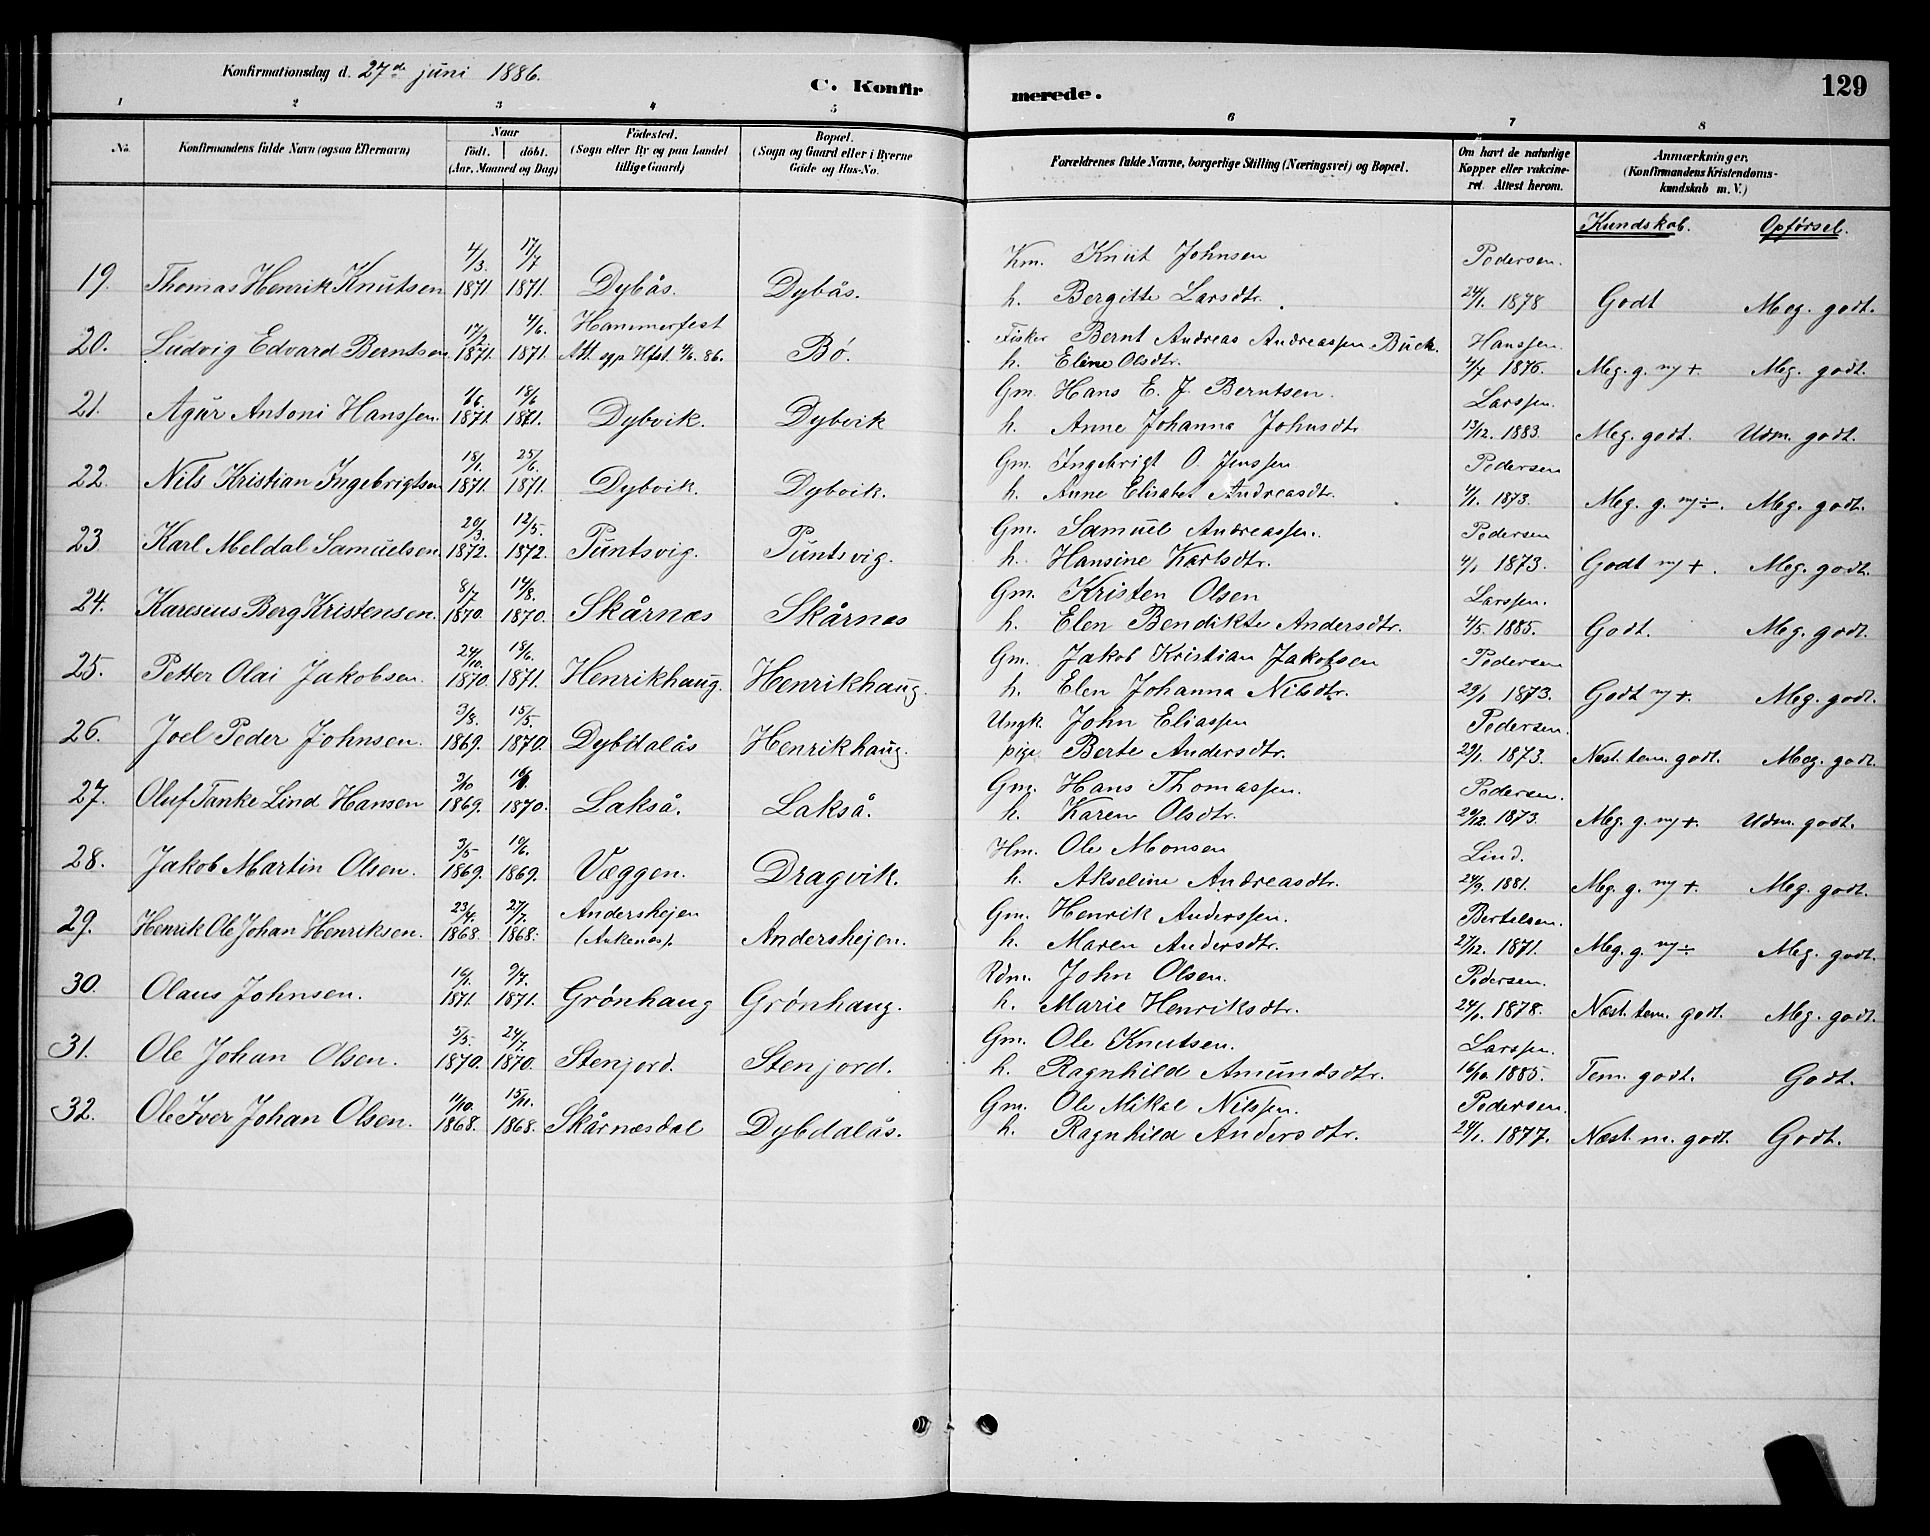 Konfirmationsdag d. 27de juni 1886.
C. Konfirmerede.
129
1 2 3 4 5 6 7 8
No. Konfirmandens fulde Navn (ogsaa Efternavn) Naar födt. döbt. (Aar, Maaned og Dag) Födested. (Sogn eller By og paa Landet tillige Gaard) Bopæl. (Sogn og Gaard eller i Byerne Gade og Hus-No. Forældrenes fulde Navne, borgerlige Stilling (Næringsvei) og Bopæl. Om havt de naturlige Kopper eller vakcineret. Attest herom. Anmærkninger. (Konfirmandens Kristendomskundskab m. V.)
Kundskab. Opførsel.
4/3. 17/7 Km. Knut Johnsen Pedersen.
19. Thomas Henrik Knutsen 1871 1871. Dybås. Dybås. h. Bergitte Larsdtr. 24/1. 1878 Godt Meg. godt.
17/2 4/6. Hammerfest Fisker Bernt Andreas Andreassen Buck. Hanssen.
20. Ludvig Edvard Berntsen 1871. 1871. Att. sgp. Hfst. 4/6. 86. Bø. h. Eline Olsdtr. 4/7 1876. Meg. g. m/+. Meg. godt.
1/6. 18/6 Gm. Hans E. J. Berntsen. Larssen.
21. Agur Antoni Hanssen. 1871. 1871. Dybvik. Dybvik h. Anne Johanna Johnsdtr 13/12. 1883. Meg. godt. Udm. godt.
18/1. 25/6. Gm. Ingebrigt O. Jenssen Pedersen
22. Nils Kristian Ingebrigtsen 1871. 1871. Dybvik. Dybvik. h. Anne Elisabet Andreasdtr. 4/1. 1873. Meg. g. m/÷. Meg. godt.
20/3. 12/5. Gm. Samuel Andreassen. Pedersen
23. Karl Meldal Samuelsen 1872. 1872. Puntsvig. Puntsvig. h. Hansine Karlsdtr. 4/1 1873. Godt m/+. Meg. godt.
8/7 14/8. Gm. Kristen Olsen Larssen.
24. Karesius Berg Kristensen. 1870. 1870. Skårnæs Skårnæs h. Elen Bendikte Andersdtr. 4/5. 1885. Godt. Meg. godt.
24/10. 18/6. Gm. Jakob Kristian Jakobsen Pedersen
25. Petter Olai Jakobsen. 1870. 1871. Henrikhaug. Henrikhaug. h. Elen Johanna Nilsdtr. 29/1 1873. Godt m/+. Meg. godt.
3/8. 15/5. Ungk. John Eliassen Pedersen.
26. Joel Peder Johnsen. 1869. 1870. Dybdalås Henrikhaug. pige Berte Andersdtr. 29/1. 1873. Næst. tem. godt. Meg. godt.
Gm. Hans Thomassen. Pedersen.
27. Oluf Tanke Lind Hansen 1869. 1870. Lakså. Lakså. h. Karen Olsdtr. 20/12. 1873. Meg. g. m/+. Udm. godt.
3/5 19/6. Hm. Ole Monsen Lind.
28. Jakob Martin Olsen. 1869. 1869. Væggen. Dragvik. h. Akseline Andreasdtr. 24/9. 1881. Meg. g. m/+. Meg. godt.
23/4. 27/7. Andershejen Gm. Henrik Anderssen. Bertelsen.
29. Henrik Ole Johan Henriksen. 1868. 1868. (Ankenæs). Andershejen. h. Maren Andersdtr. 27/12. 1871. Meg. g. m/÷ Meg. godt.
9/7. Rdm. John Olsen. Pedersen.
30. Olaus Johnsen. 1871. 1871. Grønhaug Grønhaug. h. Marie Henriksdtr. 24/1. 1878. Næst. tem. godt. Meg. godt.
5/3. 24/7. Gm. Ole Knutsen. Larssen.
31. Ole Johan Olsen. 1870. 1870. Stenjord. Stenjord. h. Ragnhild Amundsdtr. 16/10. 1885. Tem. godt. Godt.
11/10. 15/11. Gm. Ole Mikal Nilssen. Pedersen.
32. Ole Iver Johan Olsen. 1868. 1868. Skårnæsdal Dybdalås. h. Ragnhild Andersdtr. 24/1. 1877. Næst. m. godt. Godt.